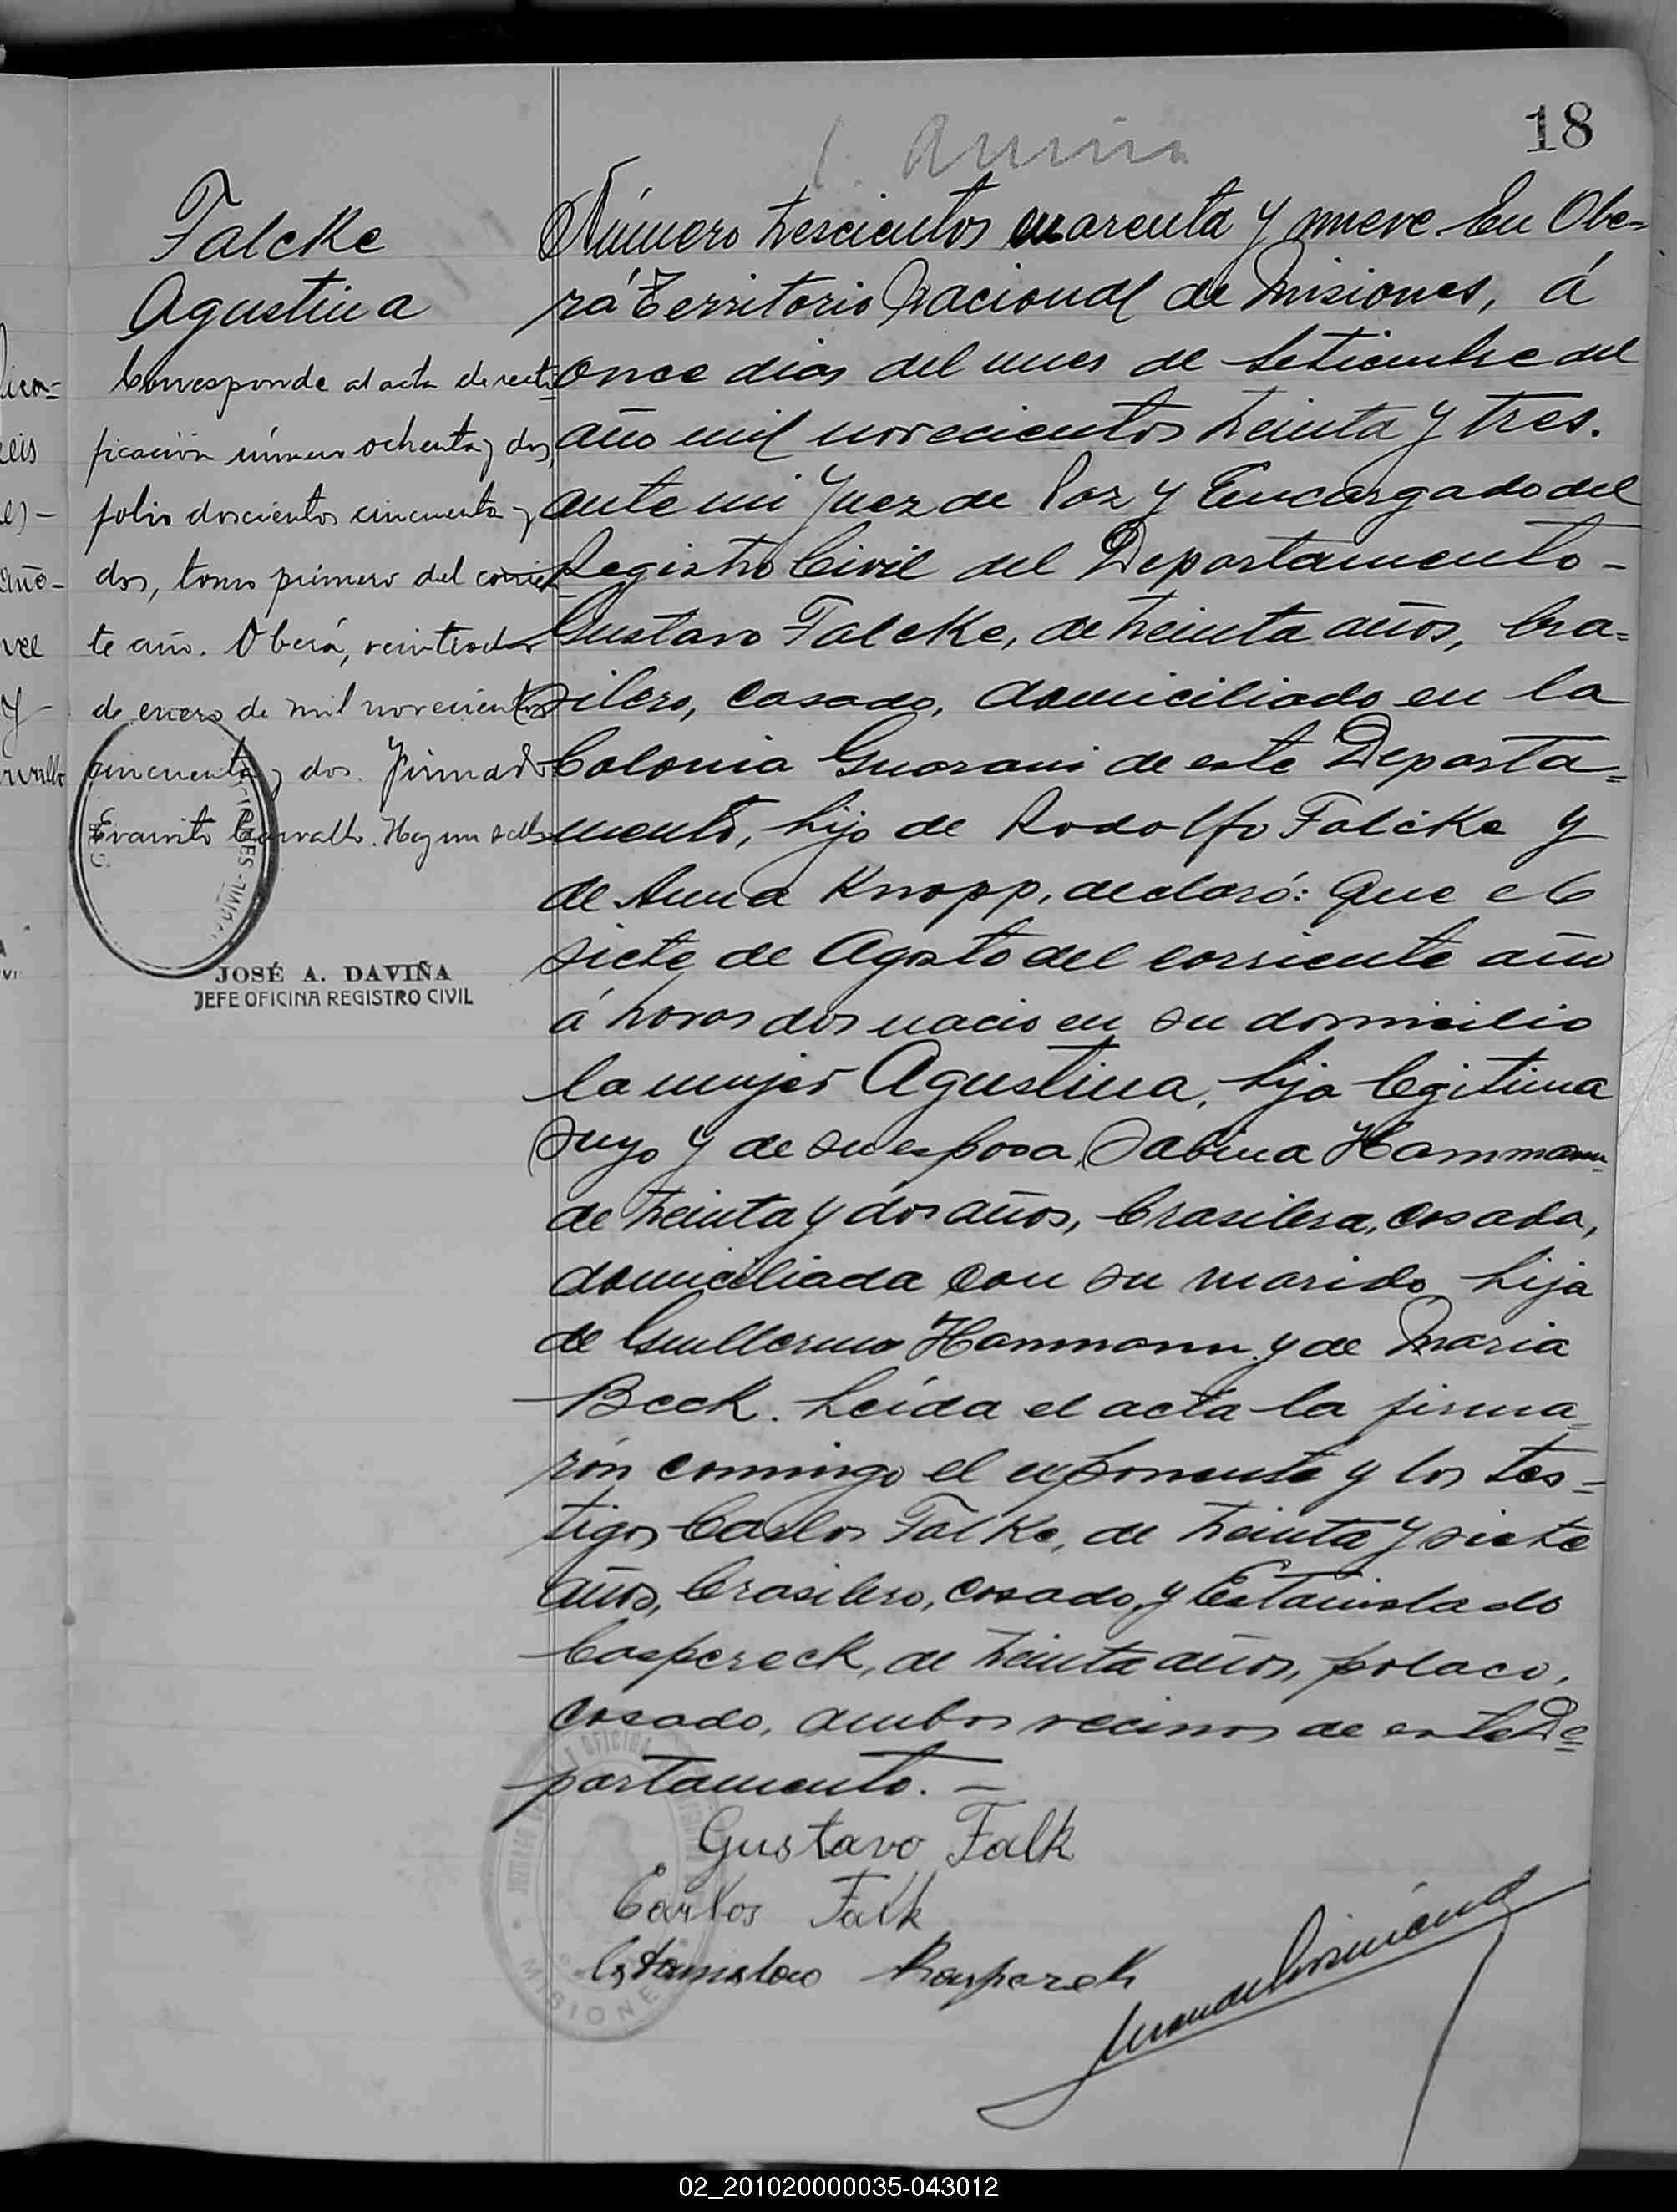 18
Falcke
Agustina
Corresponde al acta de recti=
ficación número ochenta y dos,
folio doscientos cincuenta y
dos, tomo primero del corrien
te año. Oberá, veintidos
de enero de mil novecientos
cincuenta y dos. Firmado
Evaristo Carvallo. Hay un sello
JOSÉ A. DAVIÑA
JEFE OFICINA REGISTRO CIVIL
Número trescientos cuarenta y nueve En Obe=
rá Territorio Nacional de Misiones, á
once dias del mes de Setiembre del
año mil novecientos treinta y tres.
ante mi Juez de Paz y Encargado del
Registro Civil del Departamento -
Gustavo Falcke, de treinta años, bra=
silero, casado, domiciliado en la
Colonia Guarani de este Departa=
mento, hijo de Rodolfo Falcke y
de Anna Knopp, declaró: Que el
siete de Agosto del corriente año
á horas dos nacio en su domicilio
la mujer Agustina, hija legitima
suya y de su esposa, Sabina Hammann
de treinta y dos años, brasilera, casada,
domiciliada con su marido, hija
de Guillermo Hammann y de Maria
Beck. Leída el acta la firma=
rón conmigo el exponente y los tes=
tigos Carlos Falke, de treinta y siete
años, brasilero, casado, y Estanislado
Caspereck, de treinta años, polaco,
casado, ambos vecinos de este De=
partamento. -
Gustavo Falk
Carlos Falk
Estanislao Kasparek
MISIONES
02_201020000035-043012